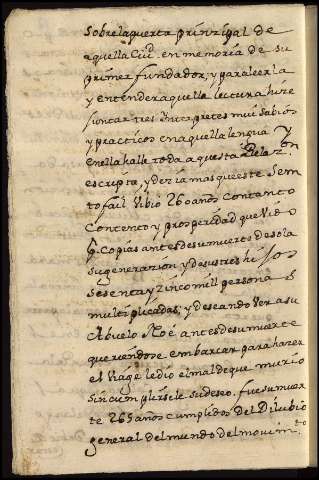 sobre la puerta prinzipal de
aquella Ciud. en memoria de su
primer fundador, y para leerla
y entender aquella lectura hize
juntar tres Interpretes mui sabios
y practicos en aquella lengua y
en ella halle toda aquesta Relazon
escripta, y dezia mas que este Sem
tofail Vibio 260 años con tanto
Contento y prosperidad que Vido
Copias antes de su muerte de sola
su generazión y de sus tres hijos
Sesenta y zinco mil personas
multiplicadas; y deseando Ver a su
Abuelo Noé antes de su muerte
queriendose embarcar para hazer
el viage le dio el mal de que murio
sin cumplirsele su deseo. fue su muer
te 265 años cumplidos del Dilubio
general del mundo del movimto